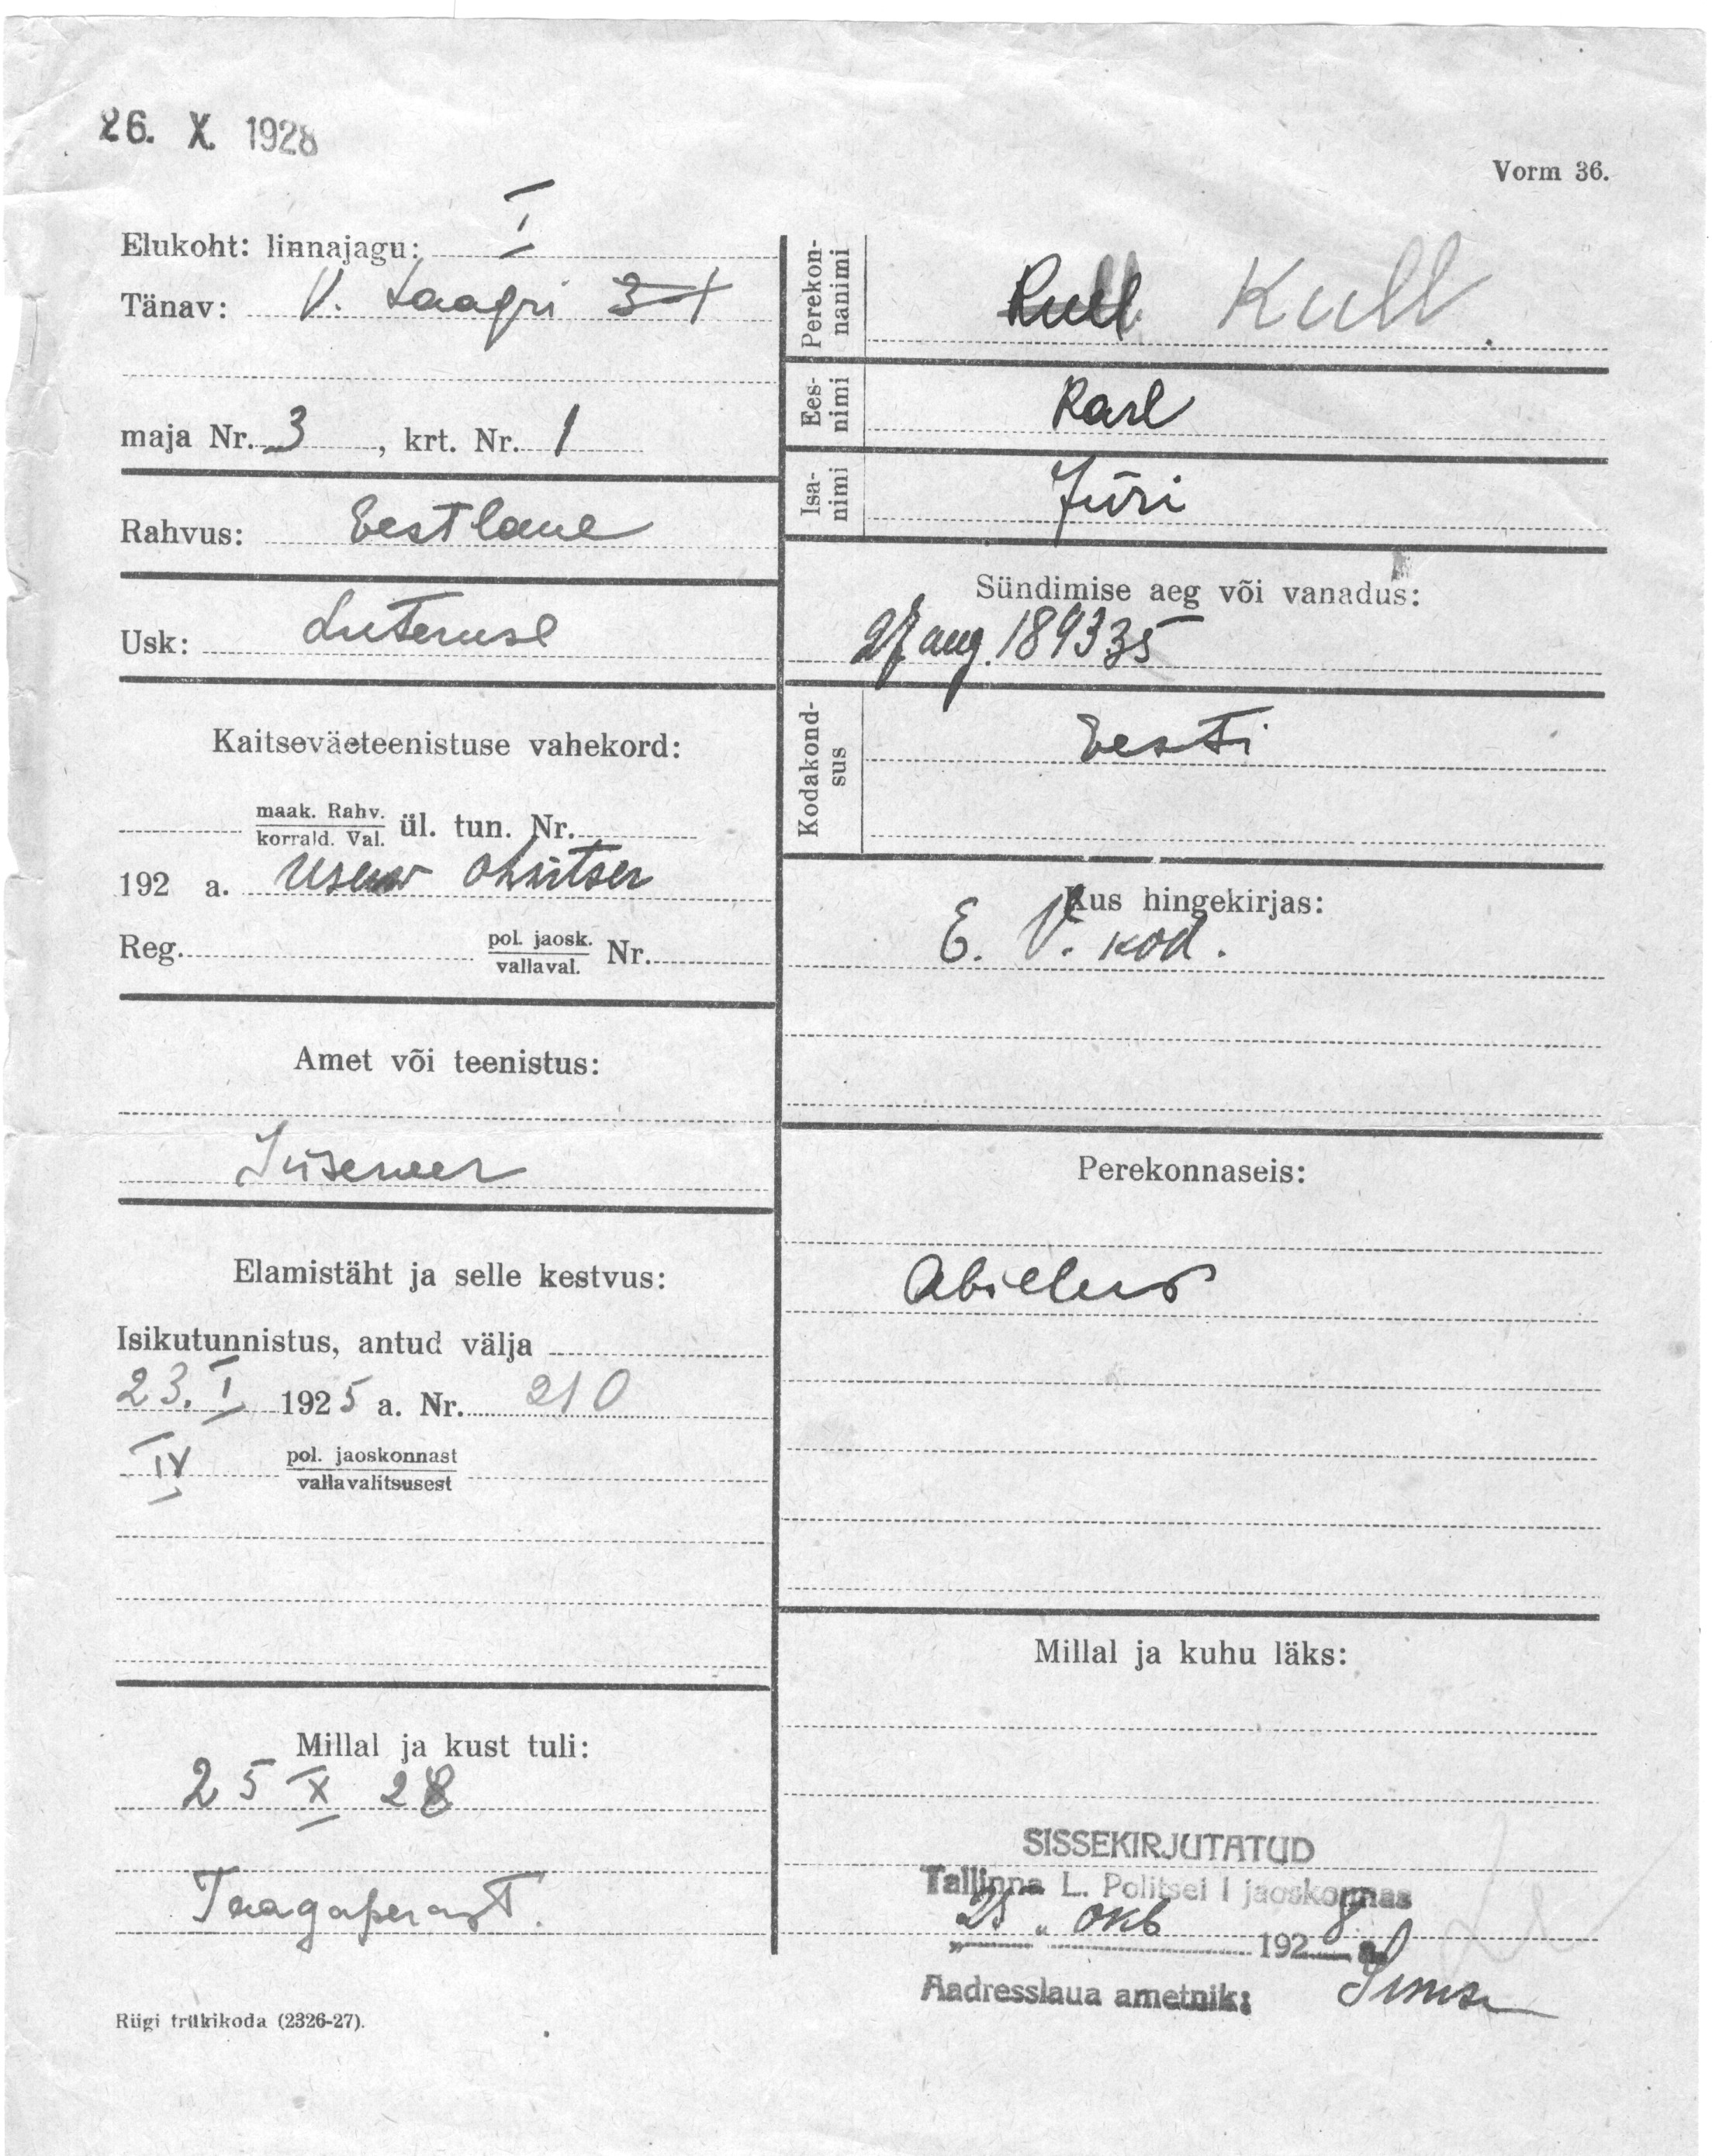 26. X. 1928
Vorm 36.
Elukoht: linnajagu: I
Tänav: V. Laagri 3-1
maja Nr. 3, krt. Nr. 1
Rahvus: Eestlane
Usk: Luteruse
Kaitseväeteenistuse vahekord:
maak. Rahv.
korrald. Val. ül. tun. Nr.
192 a. ohvitser
Reg. pol. jaosk.
vallaval. Nr.
Amet või teenistus:
Insener
Elamistäht ja selle kestvus:
Isikutunnistus, antud välja
23. I 1925 a. Nr. 210
IV pol. jaoskonnast
vallavalitsusest
Millal ja kust tuli:
25 X 28
Taagaperast.
Riigi trükikoda (2326-27).
Perekon-
nanimi
Kull Kull
Ees-
nimi
Karl
Isa-
nimi
Jüri
Sündimise aeg või vanadus:
27 aug. 1893 35
Kodakond-
sus
Eesti
Kus hingekirjas:
E. V. kod.
Perekonnaseis:
Abielus
Millal ja kuhu läks:
SISSEKIRJUTATUD
Tallinna L. Politsei I jaoskonnas
"25" okb 1928 a.
Aadresslaua ametnik: